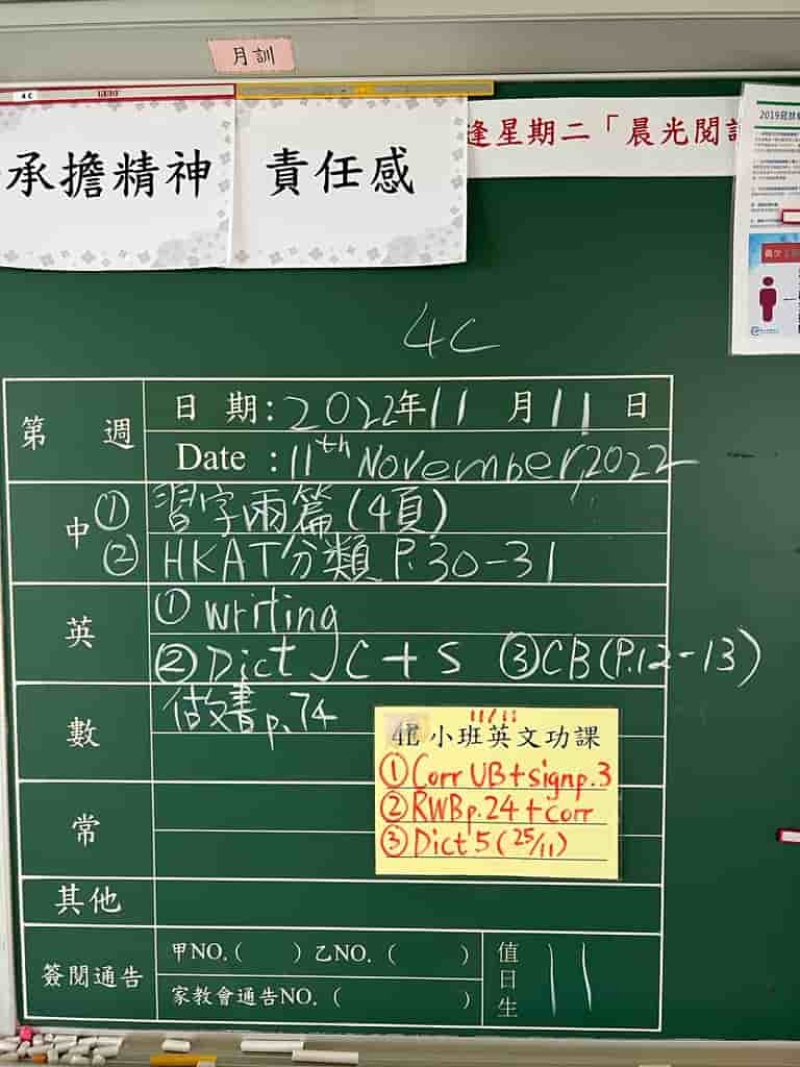 月訓
4C
承擔精神
責任感
逢星期二「晨光閱
2019冠狀
4C
第 週
日 期:2022年11 月11 日
Date :11th November,2022
中①習字兩篇(4頁)
②HKAT分類 P.30-31
英
①writing
②Dict JC+S ③CB(P.12-13)
數
做書p.74
11/11
小班英文功課
①Corr UB+sign p.3
②RWB p.24+corr
③Dict 5(25/11)
常
其他
簽閱通告
甲NO.( )乙NO.( )
家教會通告NO.( )
值日生
11